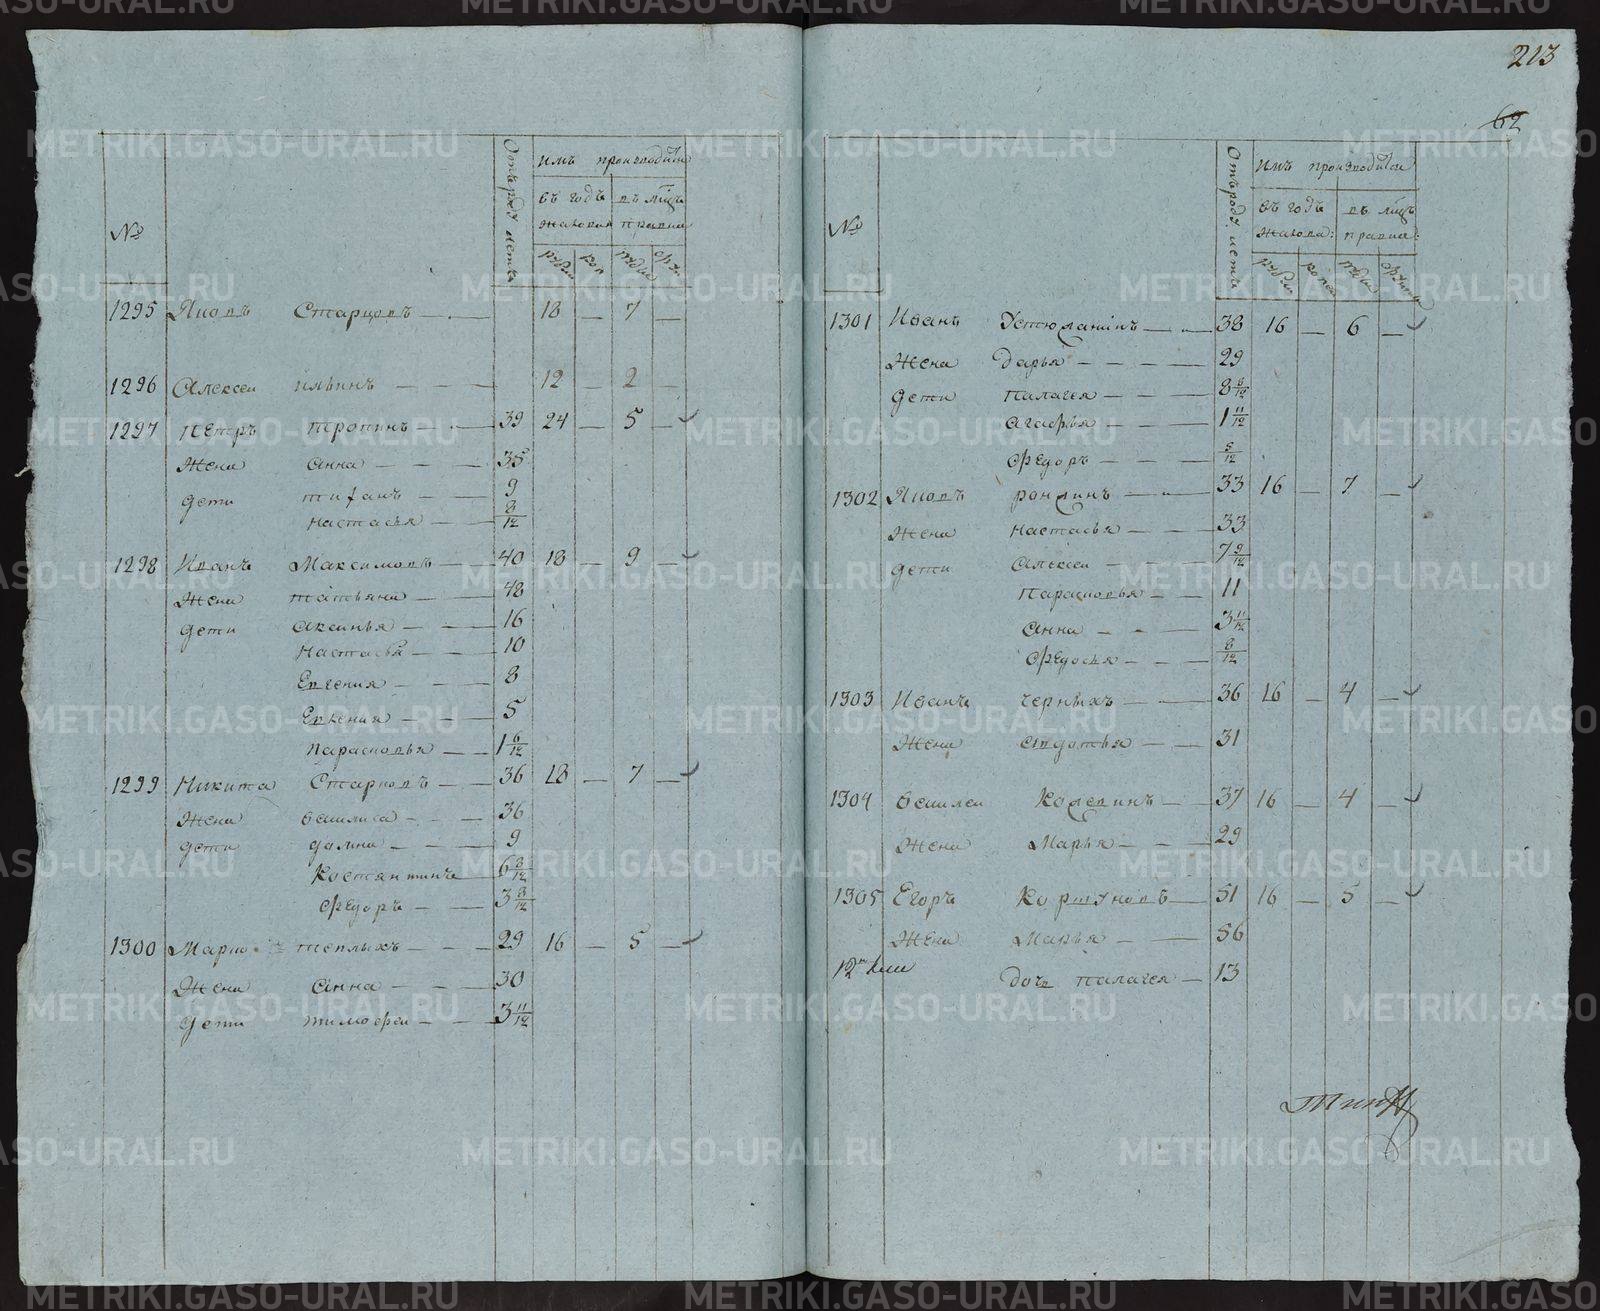 213
62
№
Отъ роду летъ
имъ производится
въ годъ
жалован
въ мцъ
правиа
рубли
коп
пуды
фун
1295 Яковъ Старцовъ 18 — 7 —
1296 Алексеи ильинъ 12 — 2 —
1297 Петръ тропинъ 39 24 — 5 —
Жена анна 35
дети
настасья 8/12
1298 Иванъ Максимовъ 40 18 — 9 —
Жена татьяна 48
дети аксинья 16
Настасья 10
Евгения 8
5
Парасковья 1 6/12
1299 Никита Старковъ 36 18 — 7 —
Жена василиса 36
дети 9
Костянтинъ 6 3/12
Федоръ 3 8/12
1300 Марко теплыхъ 29 16 — 5 —
Жена анна 30
дети тимофеи 3 11/12
№
Отъ роду летъ
имъ производится
въ годъ
жалова:
въ мцъ
правиа:
1301 Иванъ Устюжанинъ 38 16 — 6 —
Жена дарья 29
дети палагея 8 8/12
агафья 1 11/12
Федоръ 5/12
1302 Яковъ 33 16 — 7 —
Жена настасья 33
дети алексеи 7 9/12
Парасковья 11
анна 3 11/12
Федосья 8/12
1303 Иванъ черныхъ 36 16 — 4 —
Жена авдотья 31
1304 василеи Колевинъ 37 16 — 4 —
Жена Марья 29
1305 Егоръ Коршуновъ 51 16 — 5 —
Жена Марья 56
дочь палагея 13
METRIKI.GASO-URAL.RU